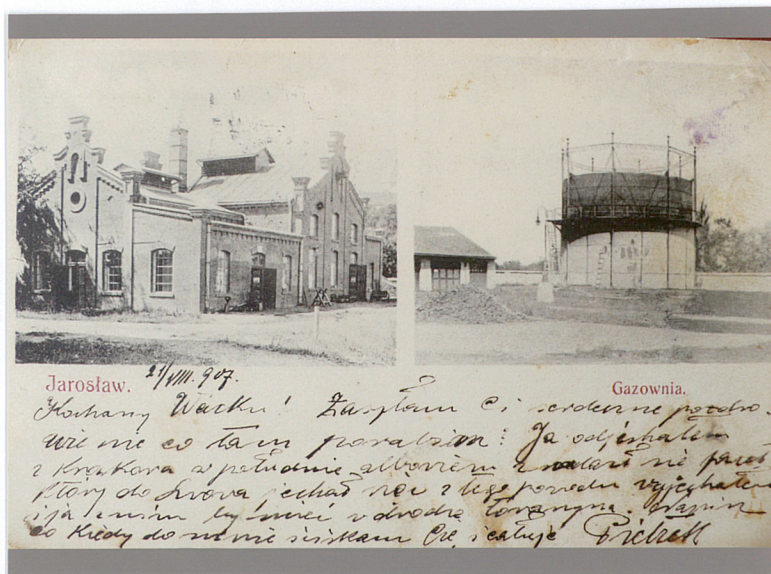 Jarosław. 21/VIII. 907. Gazownia.
Kochany Wacku! Zasyłam Ci serdeczne pozdro-
wienie co tam porabiasz? Ja odjechałem
z Krakowa w południe albowiem znalazł się
który do Lwowa jechał więc z tego powodu wyjechałem
i ja z nim by mieć w drodze
co kiedy do mnie ściskam Cię i całuję